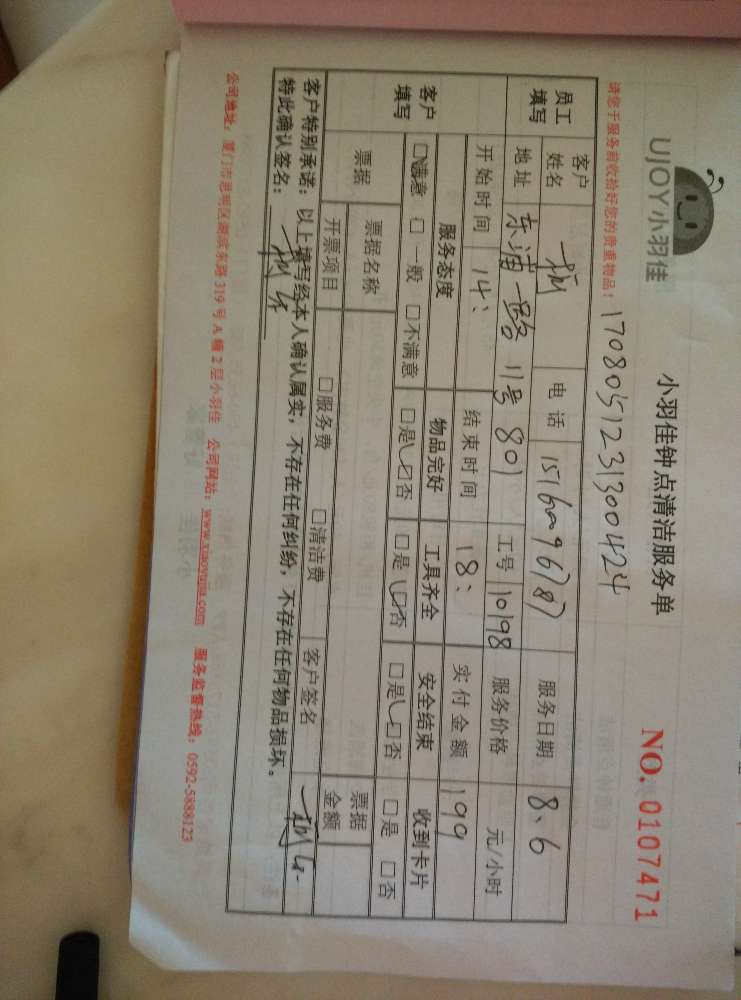 UJOY小羽佳
小羽佳钟点清洁服务单
NO. 0107471
请您于服务前收拾好您的贵重物品！
17080512313004 24
员工填写
客户姓名 电话 服务日期 8.6
地址 东浦一路11号801 工号 10198 服务价格 元/小时
开始时间 14： 结束时间 18： 实付金额 199
客户填写
服务态度 物品完好 工具齐全 安全结束 收到卡片
□满意 □一般 □不满意 □是 □否 □是 □否 □是 □否 □是 □否
票据 票据名称 票据金额
开票项目 □服务费 □清洁费 客户签名
客户特别承诺：以上填写经本人确认属实，不存在任何纠纷，不存在任何物品损坏。
特此确认签名：
公司地址：厦门市思明区湖滨东路319号A幢2层小羽佳 公司网站：www.xiaoyujia.com 服务监督热线：0592-5888123